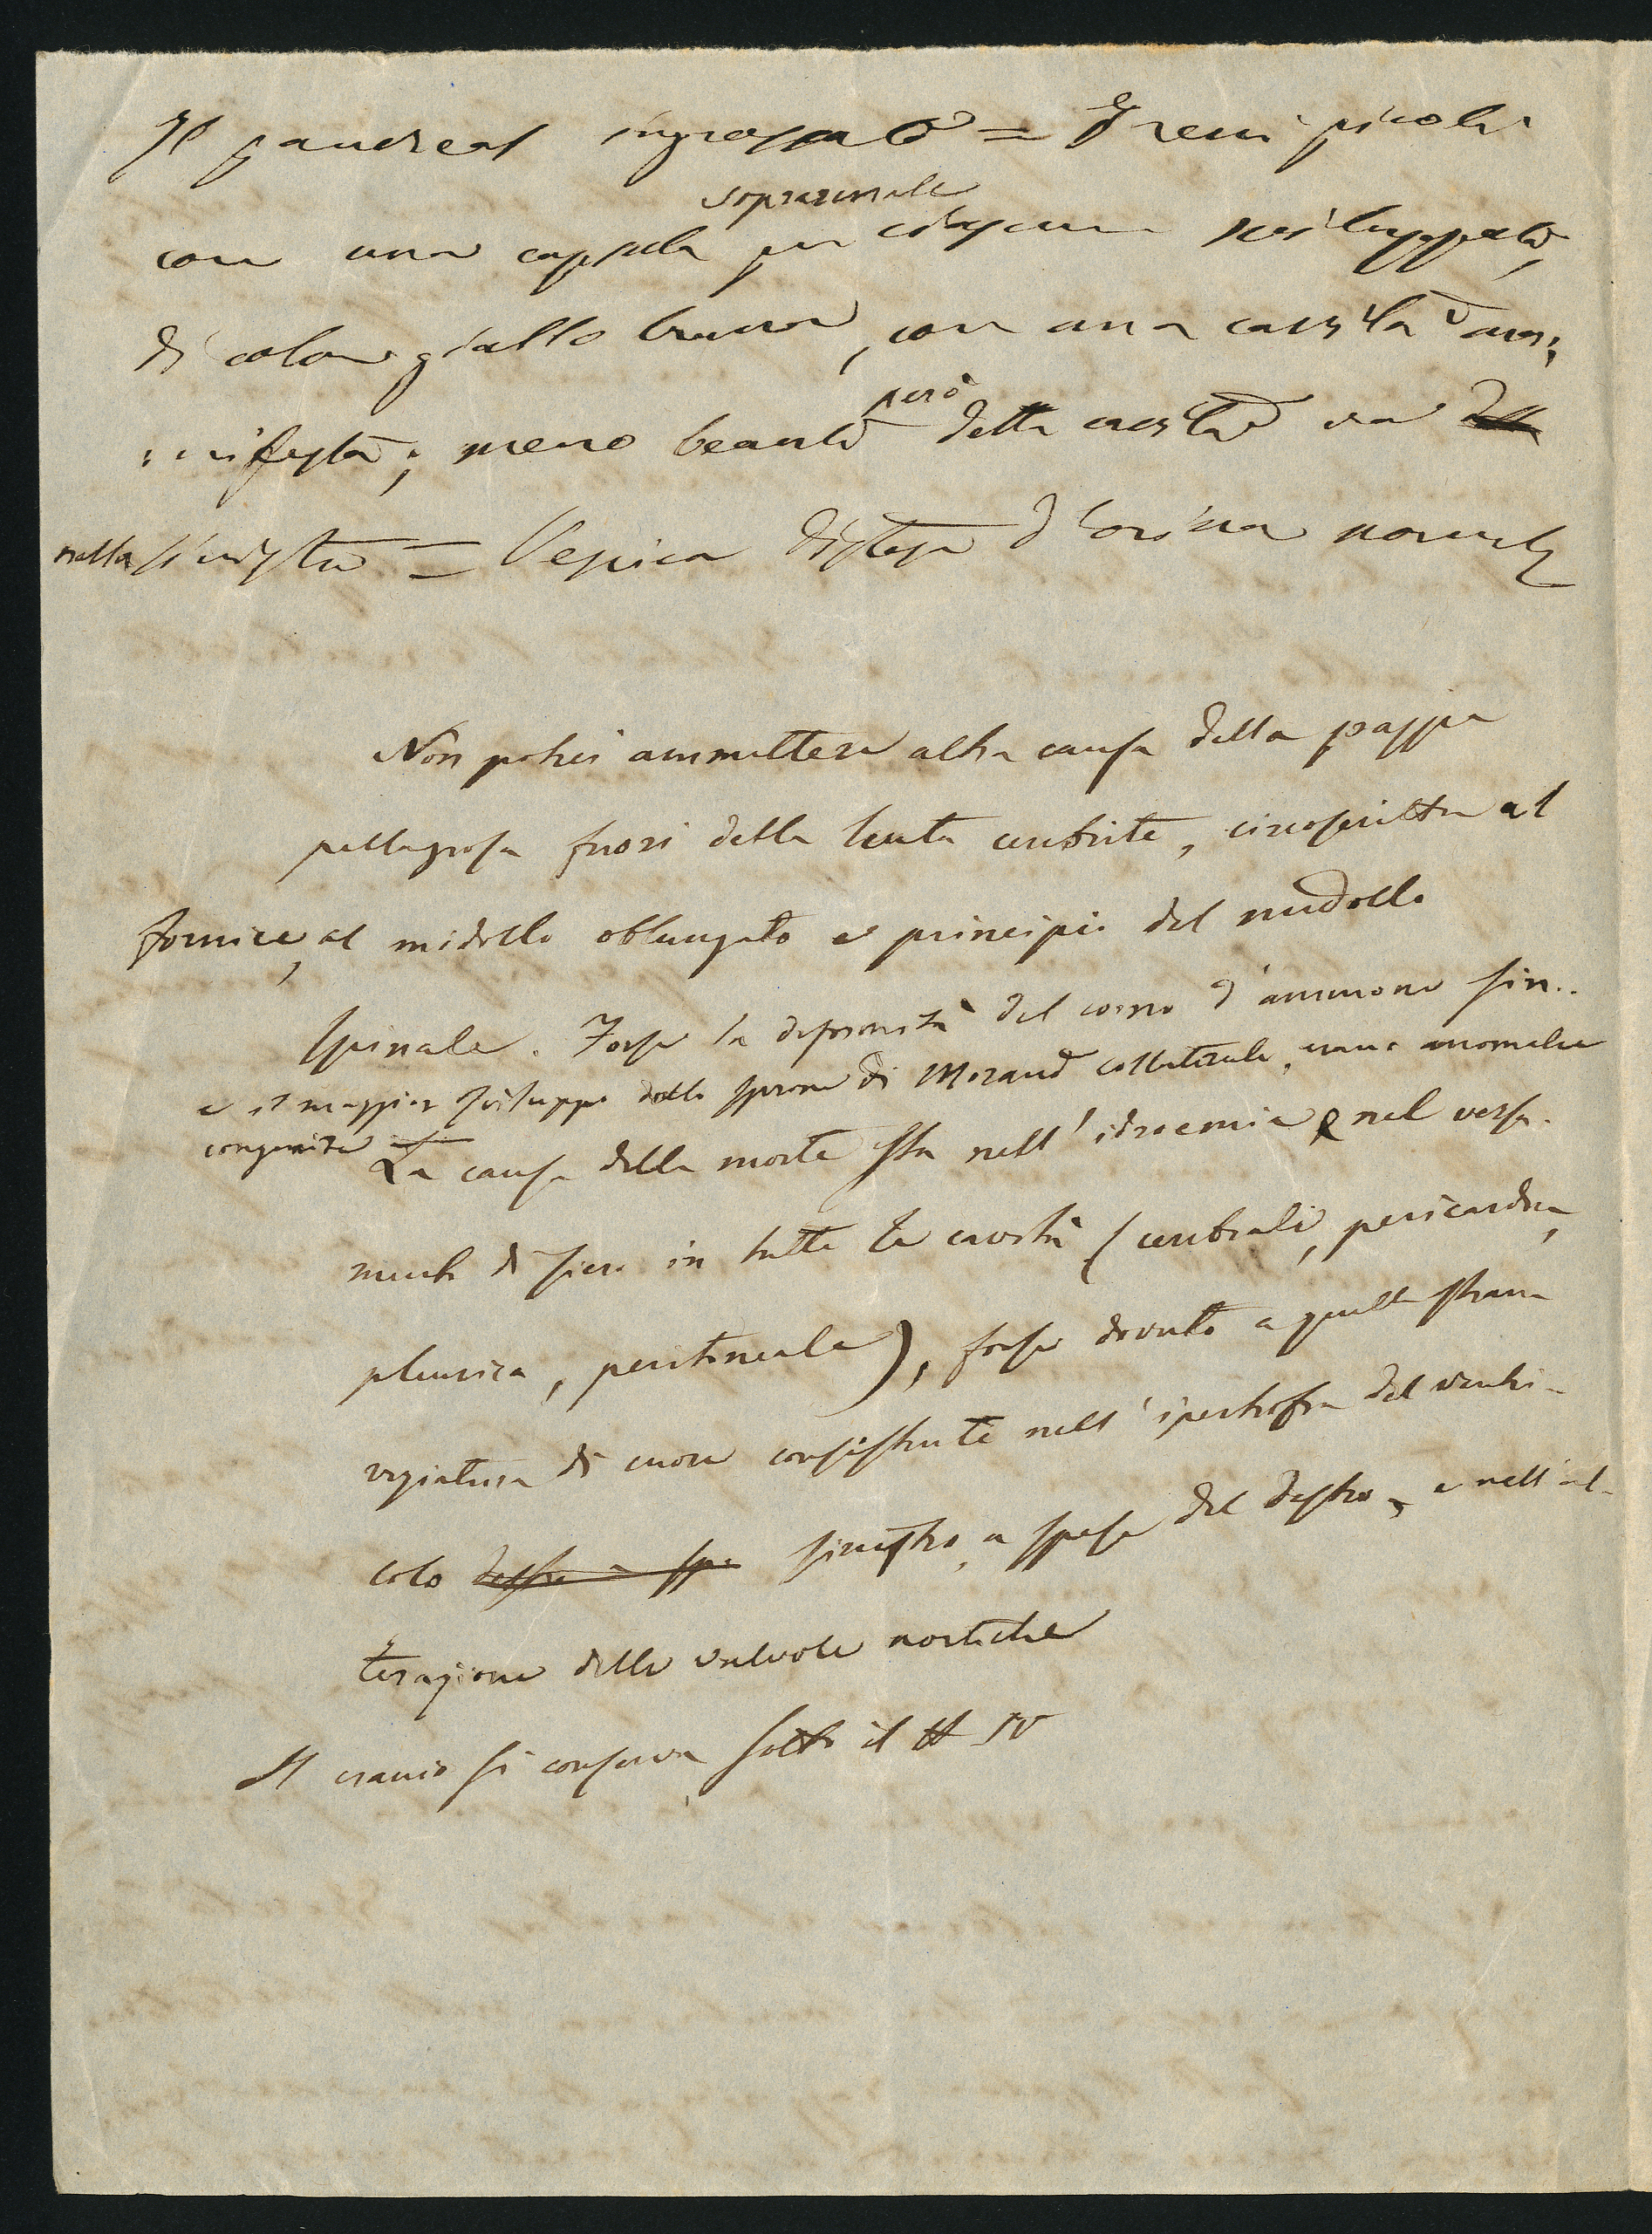 Il pancreas ingrossato = I reni picoli
soprarenale
con una capsula per ciascun sviluppata,
di color giallo bruno, con una cavità ma-
nifesta; meno beante però detta cavità era
nella sinistra = Vessica distesa d'orina normale
Non potrei ammettere altra causa della pazzia
pellagrosa fuori della lenta cerebrite, circoscritta al
fornice, al midollo oblungato e principio del midollo
spinale. Forse la deformità del corno d'ammone sin..
e il maggior sviluppo dello sprone di Morand collaterale, erano anomalie
congenite
La causa della morte sta nell'idroemia e nel versa-
mento di siero in tutte le cavità (cerebrali, pericardica,
pleurica, peritoneale), forse dovuto a quella strana
viziatura di cuore consistente nell'ipertrofia del ventri-
colo destro a spe sinistro, a spese del destro, e nell'al-
terazione delle valvole aortiche
Il cranio si conserva sotto il N IV